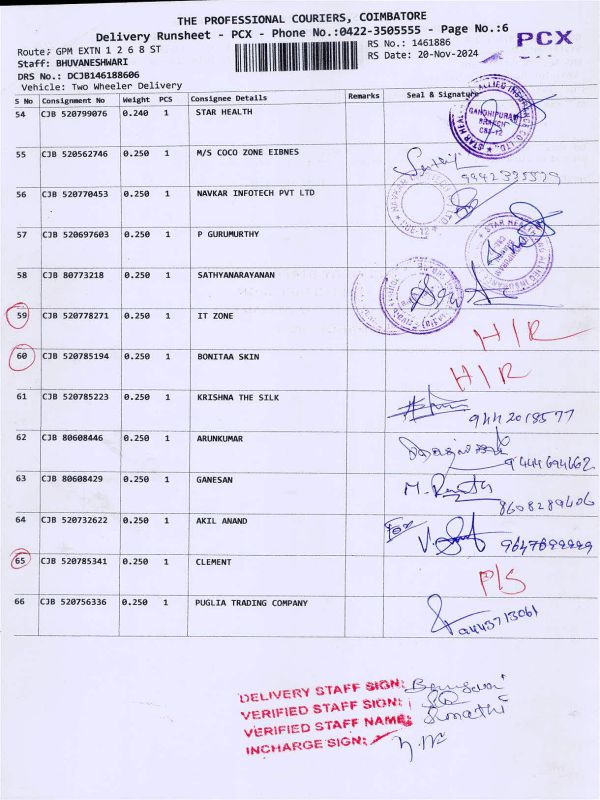 THE PROFESSIONAL COURIERS, COIMBATORE
Delivery Runsheet - PCX - Phone No.:0422-3505555 - Page No.:6
Route: GPM EXTN 1 2 6 8 ST
RS No.: 1461886
PCX
Staff: BHUVANESHWARI
RS Date: 20-Nov-2024
DRS No.: DCJB146188606
Vehicle: Two Wheeler Delivery
S No Consignment No Weight PCS Consignee Details Remarks Seal & Signature
54 CJB 520799076 0.240 1 STAR HEALTH
GANDHIPURAM
BRANCH
CBE-12
55 CJB 520562746 0.250 1 M/S COCO ZONE EIBNES
56 CJB 520770453 0.250 1 NAVKAR INFOTECH PVT LTD
57 CJB 520697603 0.250 1 P GURUMURTHY
58 CJB 80773218 0.250 1 SATHYANARAYANAN
59 CJB 520778271 0.250 1 IT ZONE H/R
60 CJB 520785194 0.250 1 BONITAA SKIN H/R
61 CJB 520785223 0.250 1 KRISHNA THE SILK 9442018577
62 CJB 80608446 0.250 1 ARUNKUMAR 9444694662
63 CJB 80608429 0.250 1 GANESAN 8608289406
64 CJB 520732622 0.250 1 AKIL ANAND
65 CJB 520785341 0.250 1 CLEMENT P/S
66 CJB 520756336 0.250 1 PUGLIA TRADING COMPANY
DELIVERY STAFF SIGN:
VERIFIED STAFF SIGN:
VERIFIED STAFF NAME:
INCHARGE SIGN: